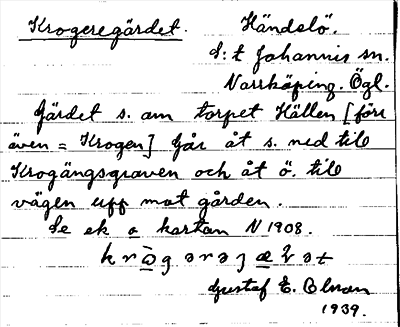 Krogeregärdet. Händelö.
S:t Johannis sn.
Norrköping. Ögl.
Gärdet s. om torpet Hällen [förr
även = Krogen] går åt s. ned till
Krogängsgraven och åt ö. till
vägen upp mot gården.
Se ek o kartan N 1908.
Gustaf E. Olman
1939.